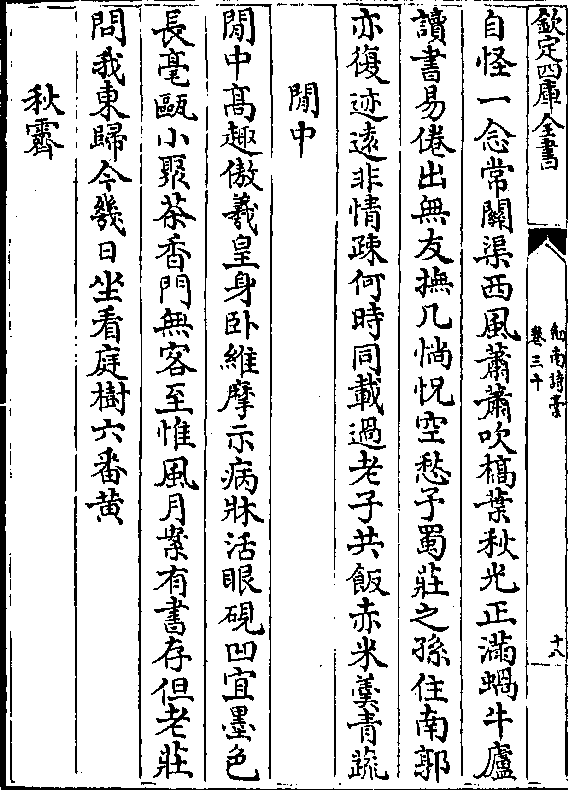 欽定四庫全書
劒南詩稾
卷三十
十八
自怪一念常關渠西風蕭蕭吹槁葉秋光正滿蝸牛廬
讀書易倦出無友撫几惝怳空愁予蜀莊之孫住南郭
亦復迹遠非情疎何時同載過老子共飯赤米羮青蔬
閒中
閒中髙趣傲羲皇身卧維摩示病牀活眼硯凹宜墨色
長毫甌小聚茶香門無客至惟風月案有書存但老莊
問我東歸今幾日坐看庭樹六番黄
秋霽